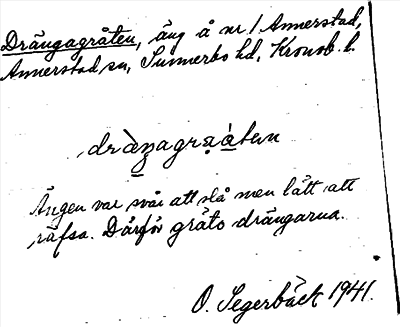 Drängagråten, äng å nr 1 Annerstad,
Annerstad sn, Sunnerbo hd, Kronob. l.
Ängen var svår att slå men lått att
räfsa. Därför gråto drängarna.
O. Segerbäck 1941.